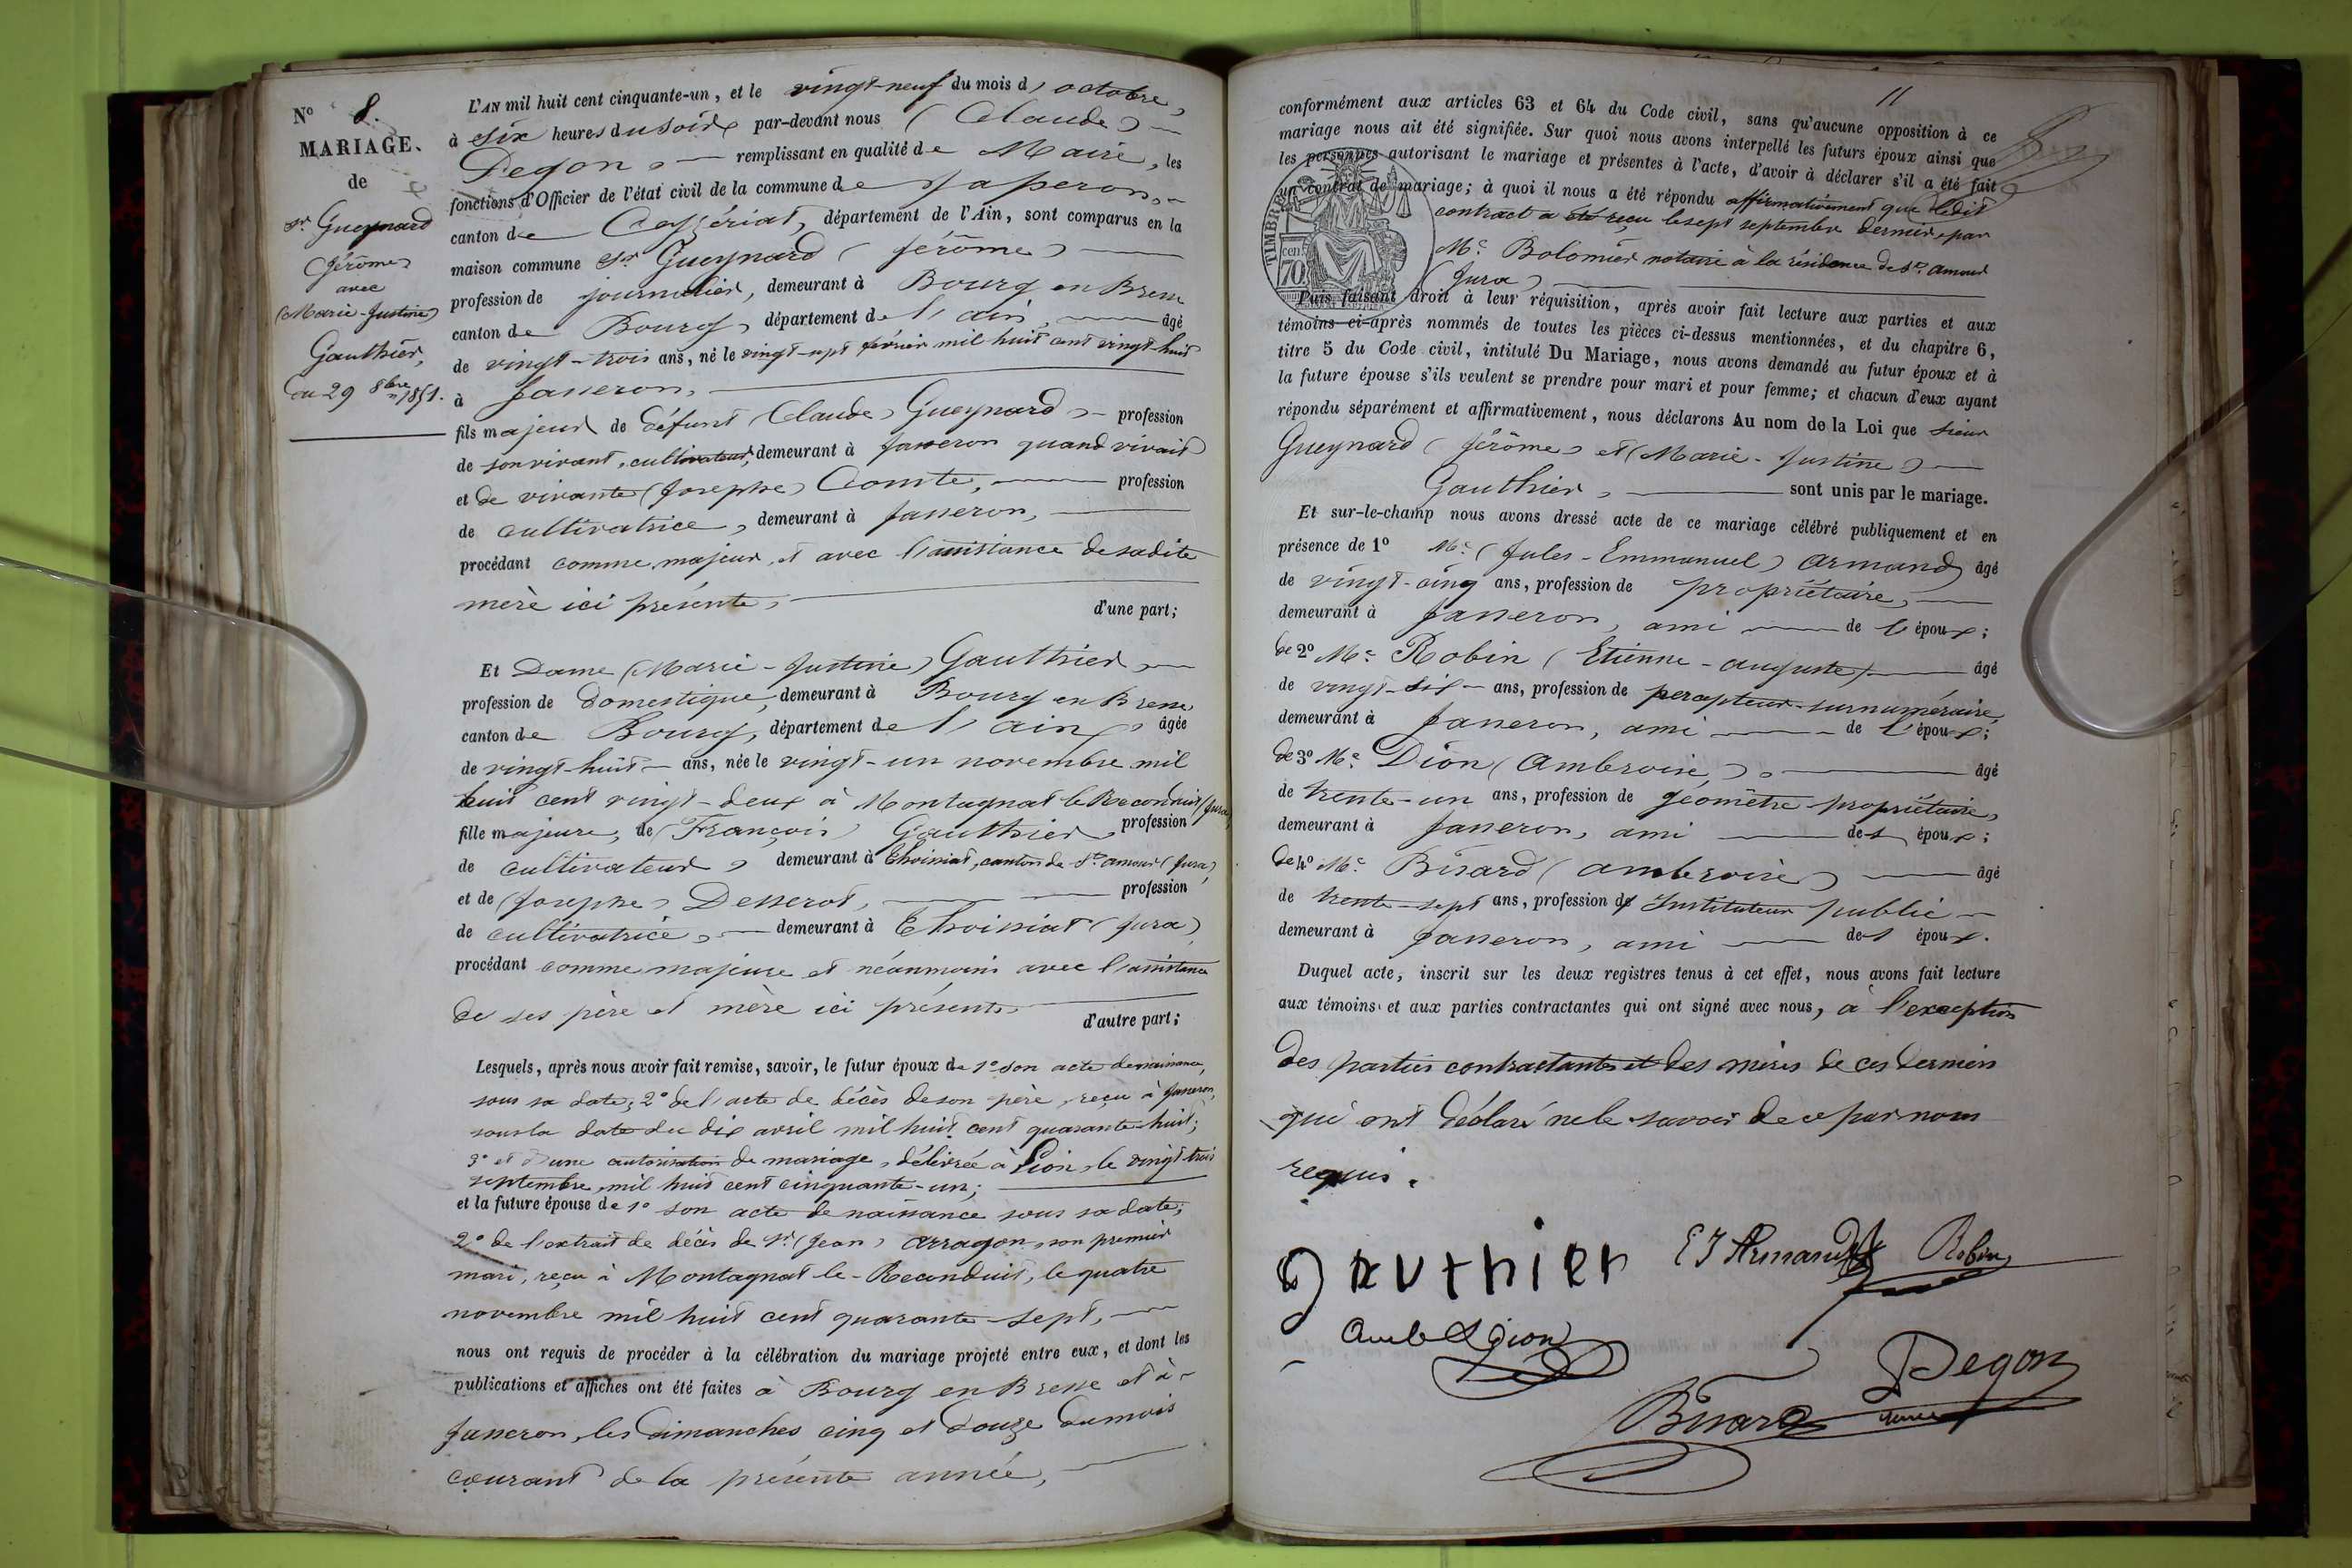 N° 8.
MARIAGE.
de
Sr. Gueynard
(Jérôme)
avec
(Marie-Justine)
Gauthier,
du 29 8bre 1851.
L'AN mil huit cent cinquante-un, et le vingt-neuf du mois d'octobre,
à six heures du soir par-devant nous (Claude)
Degon, remplissant en qualité de Maire, les
fonctions d'Officier de l'état civil de la commune de Jasseron,
canton de Ceyzériat, département de l'Ain, sont comparus en la
maison commune Sr. Gueynard (Jérôme)
profession de journalier, demeurant à Bourg en Bresse
canton de Bourg, département de l'ain, âgé
de vingt-trois ans, né le vingt-sept février mil huit cent vingt-huit
à Jasseron,
fils majeur de défunt (Claude) Gueynard, profession
de son vivant, cultivateur, demeurant à Jasseron quand vivait
et de vivante (Josephe) Comte, profession
de cultivatrice, demeurant à Jasseron,
procédant comme majeur, et avec l'assistance de sadite
mère ici présente, d'une part;
Et Dame (Marie-Justine) Gauthier,
profession de domestique, demeurant à Bourg en Bresse
canton de Bourg, département de l'ain, âgée
de vingt-huit ans, née le vingt-un novembre mil
huit cent vingt-deux à Montagnat le Reconduit (Jura)
fille majeure, de (François) Gauthier, profession
de cultivateur, demeurant à Thoissiat, canton de St. amour (Jura)
et de (Josephe) Desserot, profession
de cultivatrice, demeurant à Thoissiat (Jura)
procédant comme majeure et néanmoins avec l'assistance
de ses père et mère ici présents d'autre part;
Lesquels, après nous avoir fait remise, savoir, le futur époux de 1° son acte de naissance,
sous sa date; 2° de l'acte de décès de son père, reçu à Jasseron,
sous la date du dix avril mil huit cent quarante-huit;
3° et d'une autorisation de mariage, délivrée à Lion, le vingt trois
septembre, mil huit cent cinquante-un;
et la future épouse de 1° son acte de naissance sous sa date;
2° de l'extrait de décès de Sr. (Jean) arragon, son premier
mari, reçu à Montagnat le-Reconduit, le quatre
novembre mil huit cent quarante-sept,
nous ont requis de procéder à la célébration du mariage projeté entre eux, et dont les
publications et affiches ont été faites à Bourg en Bresse et à
Jasseron, les dimanches cinq et douze du mois
courant de la présente année,
11
conformément aux articles 63 et 64 du Code civil, sans qu'aucune opposition à ce
mariage nous ait été signifiée. Sur quoi nous avons interpellé les futurs époux ainsi que
les personnes autorisant le mariage et présentes à l'acte, d'avoir à déclarer s'il a été fait
un contrat de mariage; à quoi il nous a été répondu affirmativement que ledit
contract a été reçu le sept septembre dernier, par
Me. Bolomier notaire à la résidence de St. amour
(Jura)
TIMBRE
cen
70
Puis faisant droit à leur réquisition, après avoir fait lecture aux parties et aux
témoins ci-après nommés de toutes les pièces ci-dessus mentionnées, et du chapitre 6,
titre 5 du Code civil, intitulé Du Mariage, nous avons demandé au futur époux et à
la future épouse s'ils veulent se prendre pour mari et pour femme; et chacun d'eux ayant
répondu séparément et affirmativement, nous déclarons Au nom de la Loi que Sieur
Gueynard (Jérôme) et (Marie-Justine)
Gauthier, sont unis par le mariage.
Et sur-le-champ nous avons dressé acte de ce mariage célébré publiquement et en
présence de 1° Mr. (Jules-Emmanuel) armand âgé
de vingt-cinq ans, profession de propriétaire,
demeurant à Jasseron, ami de l'époux;
de 2° Mr. Robin (Etienne-auguste) âgé
de vingt-six ans, profession de percepteur-surnuméraire,
demeurant à Jasseron, ami de l'époux;
de 3° Mr. Dion (Ambroise), âgé
de trente-un ans, profession de géomètre propriétaire,
demeurant à Jasseron, ami des époux;
de 4° Mr. Bisard (ambroise) âgé
de trente-sept ans, profession d'Instituteur public
demeurant à Jasseron, ami des époux.
Duquel acte, inscrit sur les deux registres tenus à cet effet, nous avons fait lecture
aux témoins et aux parties contractantes qui ont signé avec nous, à l'exception
des parties contractantes et des mères de ces derniers
qui ont déclaré ne le savoir de ce par nous
requis.
gauthier EJ Armand Robin
Amb Dion
Degon
Bisard maire